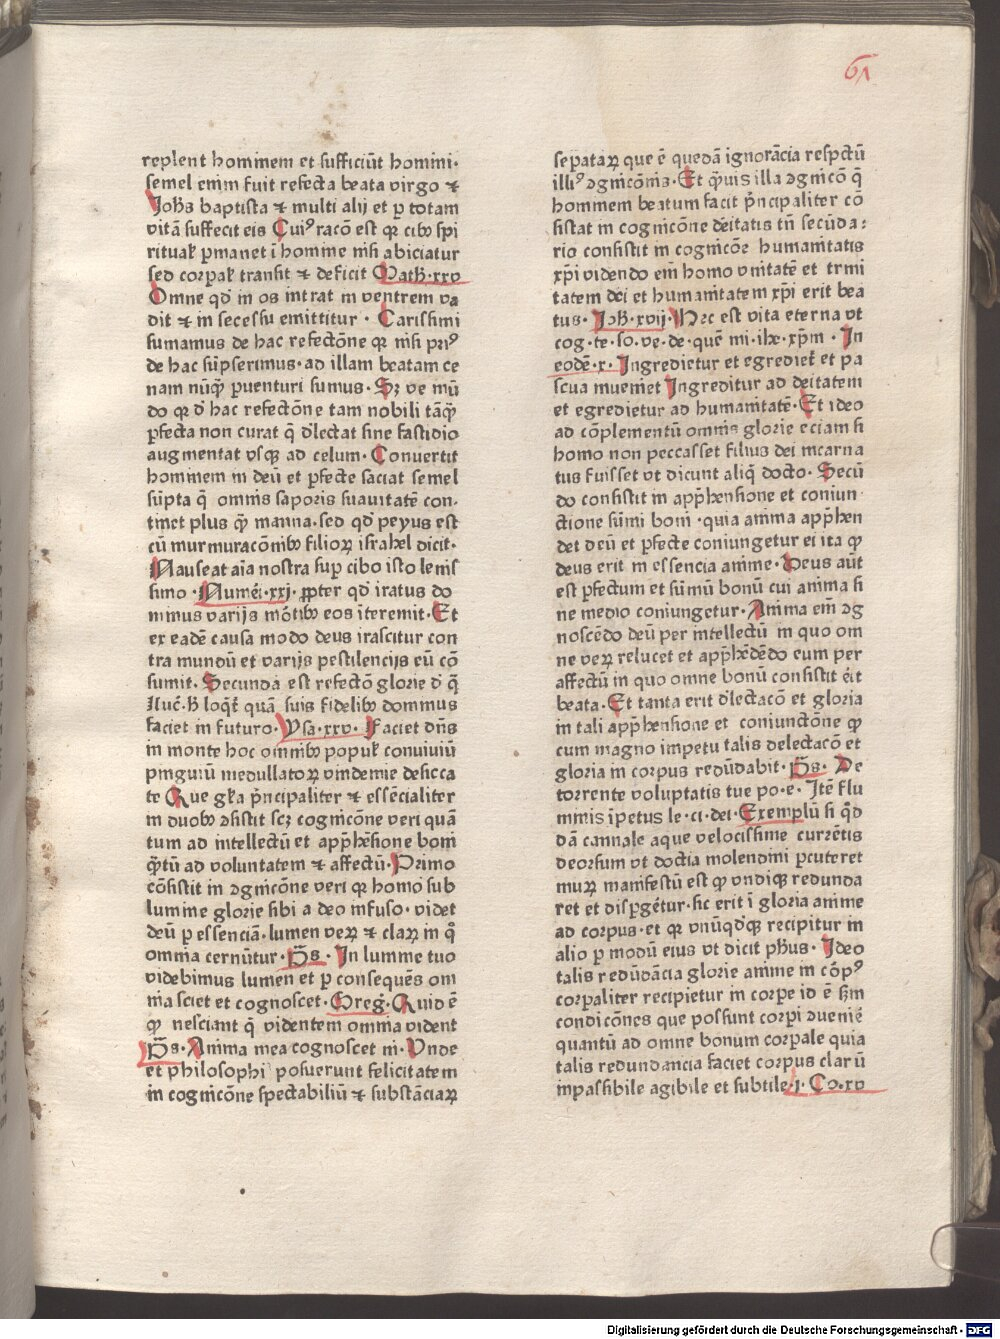 61
replent hominem et sufficiūt homini·
semel enim fuit refecta beata virgo ⁊
Johēs baptista ⁊ multi alij et ꝑ totam
vitā suffecit eis Cuiꝰ racō est qꝛ cibꝰ spi
ritualꝭ ꝑmanet ī homine nisi abiciatur
sed corꝑalꝭ transit ⁊ deficit Math·xxv
Omne qd̄ in os intrat in ventrem va
dit ⁊ in secessu emittitur · Carissimi
sumamus de hac refectōne qꝛ nisi priꝰ
de hac sūpserimus·ad illam beatam ce
nam nūqꝫ ꝑuenturi sumus·Sꝫ ve mū
do qꝛ d̄ hac refectōne tam nobili tāqꝫ
ꝑfecta non curat q̄ dlectat sine fastidio
augmentat vsqꝫ ad celum·Conuertit
hominem in deū et ꝑfecte saciat semel
sūpta q̄ omnis saporis suauitatē con-
tinet plus qꝫ manna·sed qd̄ peyus est
cū murmuracōnibꝰ filioꝝ israhel dicit·
Nauseat aīa nostra suꝑ cibo isto leuis
simo ·Numeri·xxj· ꝓpter qd̄ iratus do
minus varijs mōtibꝰ eos īteremit·Et
ex eadē causa modo deus irascitur con
tra mundū et varijs pestilencijs eū cō
sumit·Secunda est refectō glorie d̄ q̄
Iluc̄·h̄ loqt̄ quā suis fidelibꝰ dominus
faciet in futuro·Ysa·xxv· Faciet dn̄s
in monte hoc omnibꝰ popułꝭ conuiuiū
pinguiū medullatoꝝ vindemie desicca
te Que gl̄ia pn̄cipaliter ⁊ essēcialiter
in duobꝰ ꝯsistit scꝫ cognicōne veri quā
tum ad intellectū et appħēsione boni
qꝫtū ad voluntatem ⁊ affectū·Primo
cōsistit in ꝯgnicōne veri qꝛ homo sub
lumine glorie sibi a deo infuso·videt
deū ꝑ essenciā·lumen veꝝ ⁊ claꝝ in q̊
omnia cernūtur·Ps̄·In lumine tuo
videbimus lumen et ꝑ consequēs om
nia sciet et cognoscet·Greg̊·Quid ē
qꝫ nesciant q̄ videntem omnia vident
Ps̄·Anima mea cognoscet ni·Vnde
et philosophi posuerunt felicitatem
in cognicōne spectabiliū ⁊ substāciaꝝ
seꝑataꝝ que ē quedā ignorācia respctū
illiꝰ ꝯgnicōnis·Et qꝫuis illa ꝯgnicō q̄
hominem beatum facit pn̄cipaliter cō
sistat in cognicōne deitatis tn̄ secūda-
rio consistit in cognicōne humanitatis
xp̄i videndo em̄ homo vnitatē et trini
tatem dei et humanitatem xp̄i erit bea
tus·Joh̄·xvij·Hec est vita eterna vt
cog·te·so·ve·de·quē mi·ihx·xp̄m · In
eodē·x·Ingredietur et egrediet̄ et pa
scua inueniet Ingreditur ad deitatem
et egredietur ad humanitatē·Et ideo
ad cōplementū omnis glorie eciam si
homo non peccasset filius dei incarna
tus fuisset vt dicunt aliq̄ docto·Secū
do consistit in appħensione et coniun
ctione sūmi boni ·quia anima appħen
det deū et ꝑfecte coniungetur ei ita qꝫ
deus erit in essencia anime·Deus aūt
est ꝑfectum et sūmū bonū cui anima si
ne medio coniungetur·Anima em̄ ꝯg
noscēdo deū per intellectū in quo om
ne veꝝ relucet et appħēdēdo eum per
affectū in quo omne bonū consistit erit
beata·Et tanta erit dlectacō et gloria
in tali appħensione et coniunctōne qꝫ
cum magno impetu talis delectacō et
gloria in corpus redūdabit·Ps̄· De
torrente voluptatis tue po·e· Itē flu
minis īpetus le·ci·dei·Exemplū si qd̄
dā cannale aque velocissime currētis
deorsum vt doctia molendini ꝑcuteret
muꝝ manifestū est qꝫ vndiqꝫ redunda
ret et dispgētur·sic erit ī gloria anime
ad corpus·et qꝛ vnūqd̄qꝫ recipitur in
alio ꝑ modū eius vt dicit pħus· Ideo
talis redūdācia glorie anime in cōpꝰ
corꝑaliter recipietur in corꝑe id ē sm̄
condicōnes que possunt corpi ꝯuenie
quantū ad omne bonum corꝑale quia
talis redundancia faciet corpus clarū
inpassibile agibile et subtile·j·Co·xv
Digitalisierung gefördert durch die Deutsche Forschungsgemeinschaft · DFG